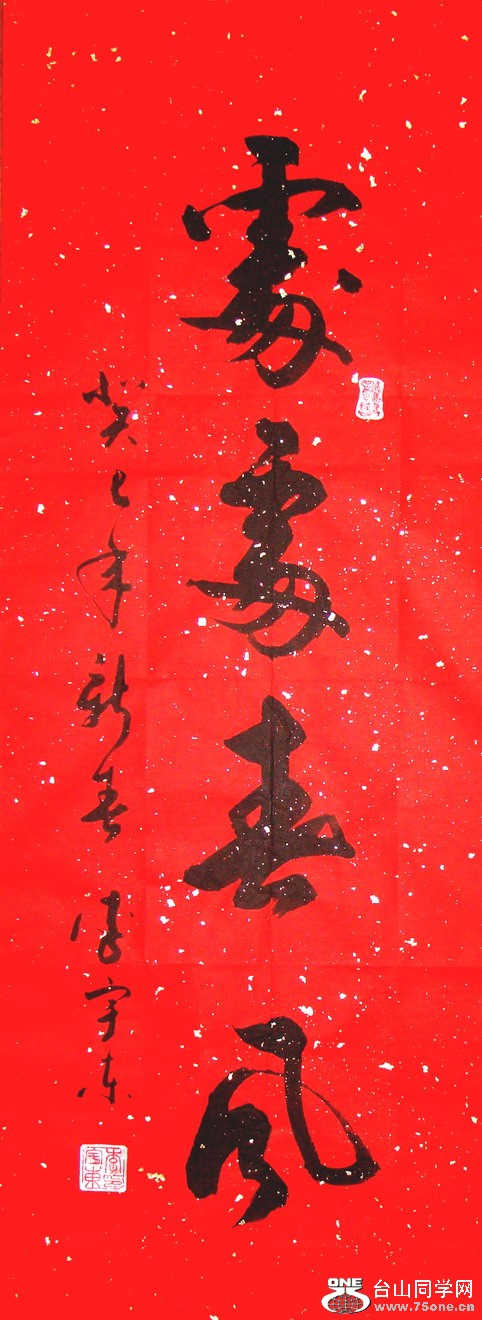 處處春風
癸巳年新春 宇东
ONE
台山同学网
www.75one.cn